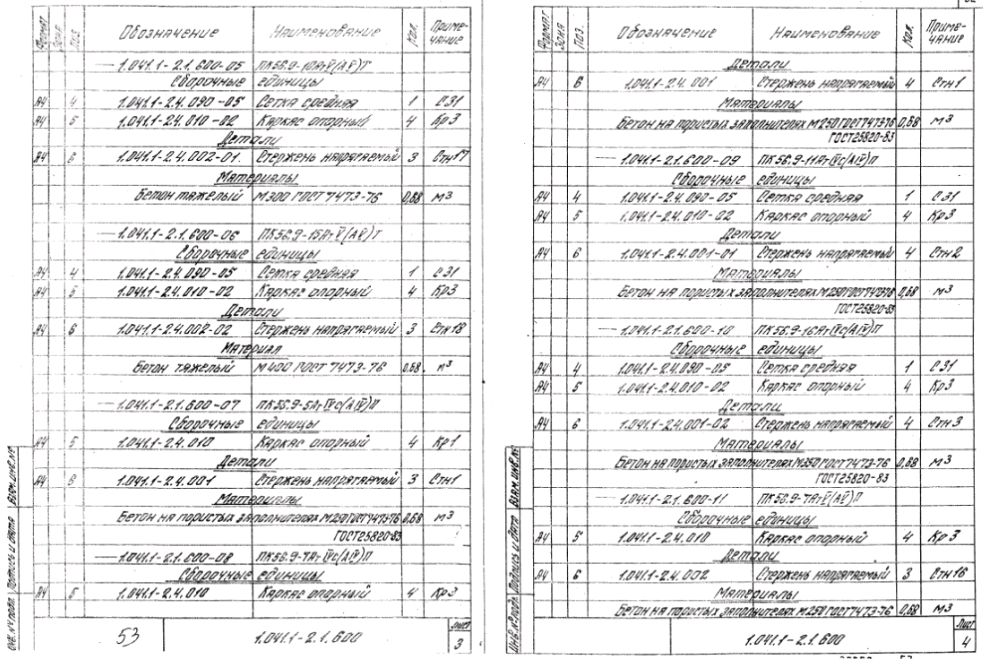 Формат Зона Поз. Обозначение Наименование Кол. Примечание
1.041.1-2.1.600-05 ПК56.9-10АтV(АV)Т
Сборочные единицы
А4 4 1.041.1-2.4.090-05 Сетка средняя 1 С31
А4 5 1.041.1-2.4.010-02 Каркас опорный 4 Кр3
Детали
А4 6 1.041.1-2.4.002-01 Стержень напрягаемый 3 Стн17
Материалы
Бетон тяжелый М300 ГОСТ 7473-76 0,68 м3
1.041.1-2.1.600-06 ПК56.9-15АтV(АV)Т
Сборочные единицы
А4 4 1.041.1-2.4.090-05 Сетка средняя 1 С31
А4 5 1.041.1-2.4.010-02 Каркас опорный 4 Кр3
Детали
А4 6 1.041.1-2.4.002-02 Стержень напрягаемый 3 Стн18
Материал
Бетон тяжелый М400 ГОСТ 7473-76 0,68 м3
1.041.1-2.1.600-07 ПК56.9-5АтIVс(АIV)П
Сборочные единицы
А4 5 1.041.1-2.4.010 Каркас опорный 4 Кр1
Детали
А4 6 1.041.1-2.4.001 Стержень напрягаемый 3 Стн1
Материалы
Бетон на пористых заполнителях М250 ГОСТ7473-76 0,68 м3
ГОСТ25820-83
1.041.1-2.1.600-08 ПК56.9-7АтIVс(АIV)П
Сборочные единицы
А4 5 1.041.1-2.4.010 Каркас опорный 4 Кр3
Инв. № подл. Подпись и дата Взам. инв. №
53 1.041.1-2.1.600 Лист 3
Формат Зона Поз. Обозначение Наименование Кол. Примечание
Детали
А4 6 1.041.1-2.4.001 Стержень напрягаемый 4 Стн1
Материалы
Бетон на пористых заполнителях М250 ГОСТ7473-76 0,68 м3
ГОСТ25820-83
1.041.1-2.1.600-09 ПК56.9-11АтIVс(АIV)П
Сборочные единицы
А4 4 1.041.1-2.4.090-05 Сетка средняя 1 С31
А4 5 1.041.1-2.4.010-02 Каркас опорный 4 Кр3
Детали
А4 6 1.041.1-2.4.001-01 Стержень напрягаемый 4 Стн2
Материалы
Бетон на пористых заполнителях М250 ГОСТ7473-76 0,68 м3
ГОСТ25820-83
1.041.1-2.1.600-10 ПК56.9-16АтIVс(АIV)П
Сборочные единицы
А4 4 1.041.1-2.4.090-05 Сетка средняя 1 С31
А4 5 1.041.1-2.4.010-02 Каркас опорный 4 Кр3
Детали
А4 6 1.041.1-2.4.001-02 Стержень напрягаемый 4 Стн3
Материалы
Бетон на пористых заполнителях М350 ГОСТ7473-76 0,68 м3
ГОСТ25820-83
1.041.1-2.1.600-11 ПК56.9-7АтV(АV)П
Сборочные единицы
А4 5 1.041.1-2.4.010 Каркас опорный 4 Кр3
Детали
А4 6 1.041.1-2.4.002 Стержень напрягаемый 3 Стн16
Материалы
Бетон на пористых заполнителях М250 ГОСТ7473-76 0,68 м3
Инв. № подл. Подпись и дата Взам. инв. №
1.041.1-2.1.600 Лист 4